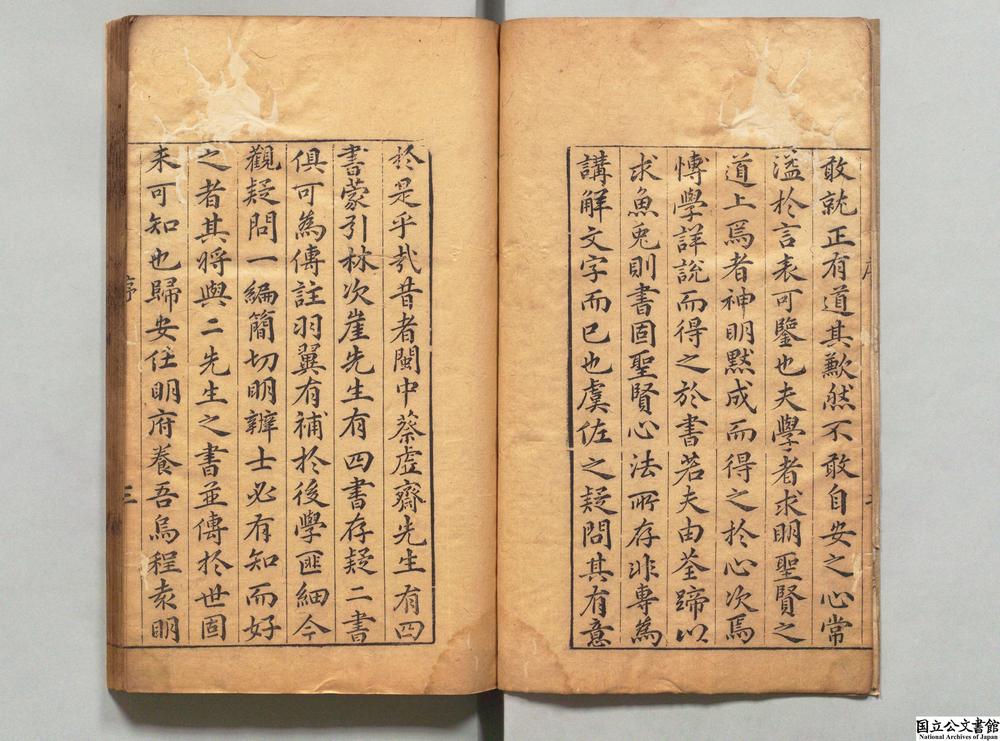 敢就正有道其歉然不敢自安之心常
溢於言表可鑒也夫學者求明聖賢之
道上焉者神明黙成而得之於心次焉
慱學詳說而得之於書若夫由荃蹄以
求魚兎則書固聖賢心法所存非專為
講解文字而已也虞佐之疑問其有意
於是乎㢤昔者閩中蔡虛齋先生有四
書蒙引林次崖先生有四書存疑二書
俱可為傳註羽翼有補於後學匪細今
觀疑問一編簡切明辨士必有知而好
之者其將與二先生之書並傳於世固
来可知也歸安任明府養吾烏程袁明
序
三
国立公文書館
National Archives of Japan